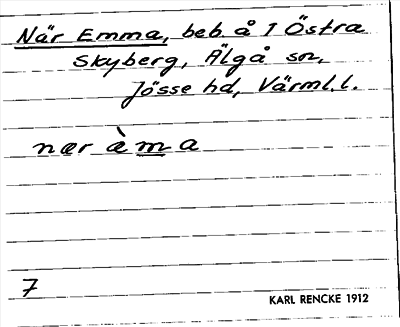 När Emma, beb. å 1 Östra
Skyberg, Älgå sn,
Jösse hd, Värml. l.
nær æ̀ma
7
KARL RENCKE 1912